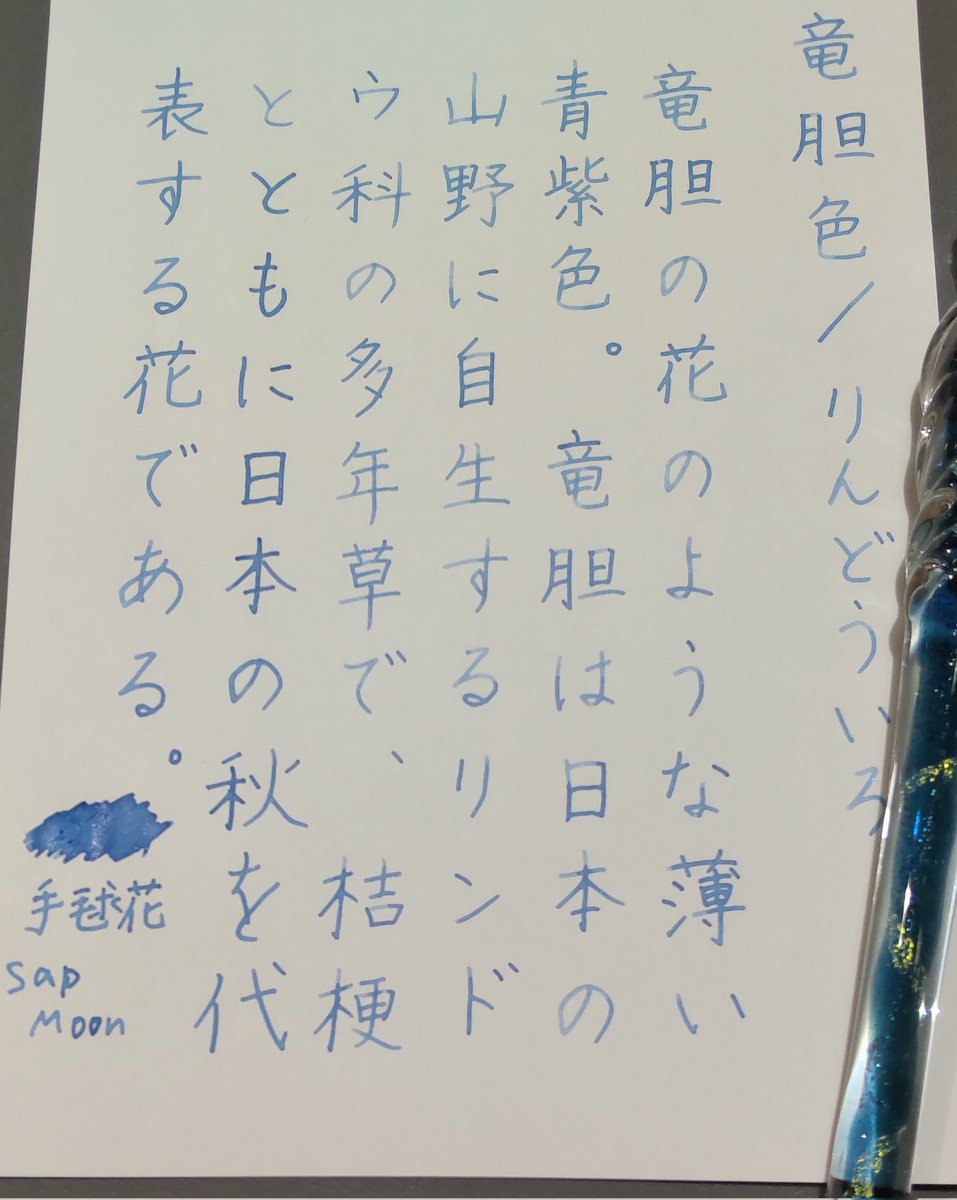 竜胆色/りんどういろ
竜胆の花のような薄い
青紫色。竜胆は日本の
山野に自生するリンド
ウ科の多年草で、桔梗
とともに日本の秋を代
表する花である。
手毬花
Sap
Moon